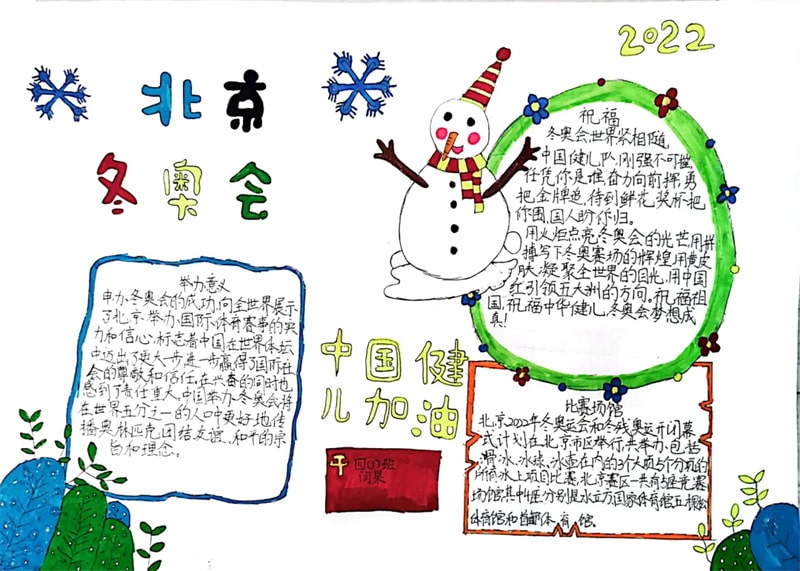 2022
北京
冬奥会
祝福
冬奥会世界紧相随,
中国健儿队,刚强不可摧,
任凭你是谁奋力向前挥,勇
把金牌追,待到鲜花,奖杯把
你围,国人盼你归。
用火炬点亮冬奥会的光芒用拼
搏写下冬奥赛场的辉煌,用黄皮
肤凝聚全世界的目光,用中国
红引领五大洲的方向。祝福祖
国,祝福中华健儿,冬奥会梦想成
真!
举办意义
申办冬奥会的成功,向全世界展示
了北京举办国际体育赛事的实
力和信心,标志着中国在世界体坛
中迈出了更大一步进一步赢得了国际社
会的尊敬和信任,在兴奋的同时也
感到了责任重大。中国举办冬奥会将
在世界五分之一的人口中更好地传
播奥林匹克团结友谊、和平的宗
旨和理念。
中国健
儿加油
四(1)班
比赛场馆
北京2022年冬奥运会和冬残奥运开闭幕
式计划在北京市区举行,共举办包括
滑冰、冰球、冰壶在内的3个大项5个分项的
所有冰上项目比赛。北京赛区一共有5座竞赛
场馆其中 分别是水立方国家体育馆五棵松
体育馆和首都体育馆。